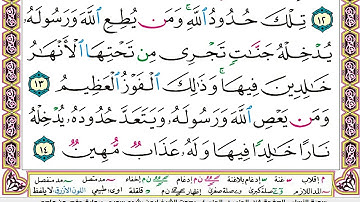 ١٢ تِلْكَ حُدُودُ ٱللَّهِ ۚ وَمَن يُطِعِ ٱللَّهَ وَرَسُولَهُۥ
يُدْخِلْهُ جَنَّٰتٍ تَجْرِى مِن تَحْتِهَا ٱلْأَنْهَٰرُ
خَٰلِدِينَ فِيهَا ۚ وَذَٰلِكَ ٱلْفَوْزُ ٱلْعَظِيمُ ١٣
وَمَن يَعْصِ ٱللَّهَ وَرَسُولَهُۥ وَيَتَعَدَّ حُدُودَهُۥ يُدْخِلْهُ
نَارًا خَٰلِدًا فِيهَا وَلَهُۥ عَذَابٌ مُّهِينٌ ١٤